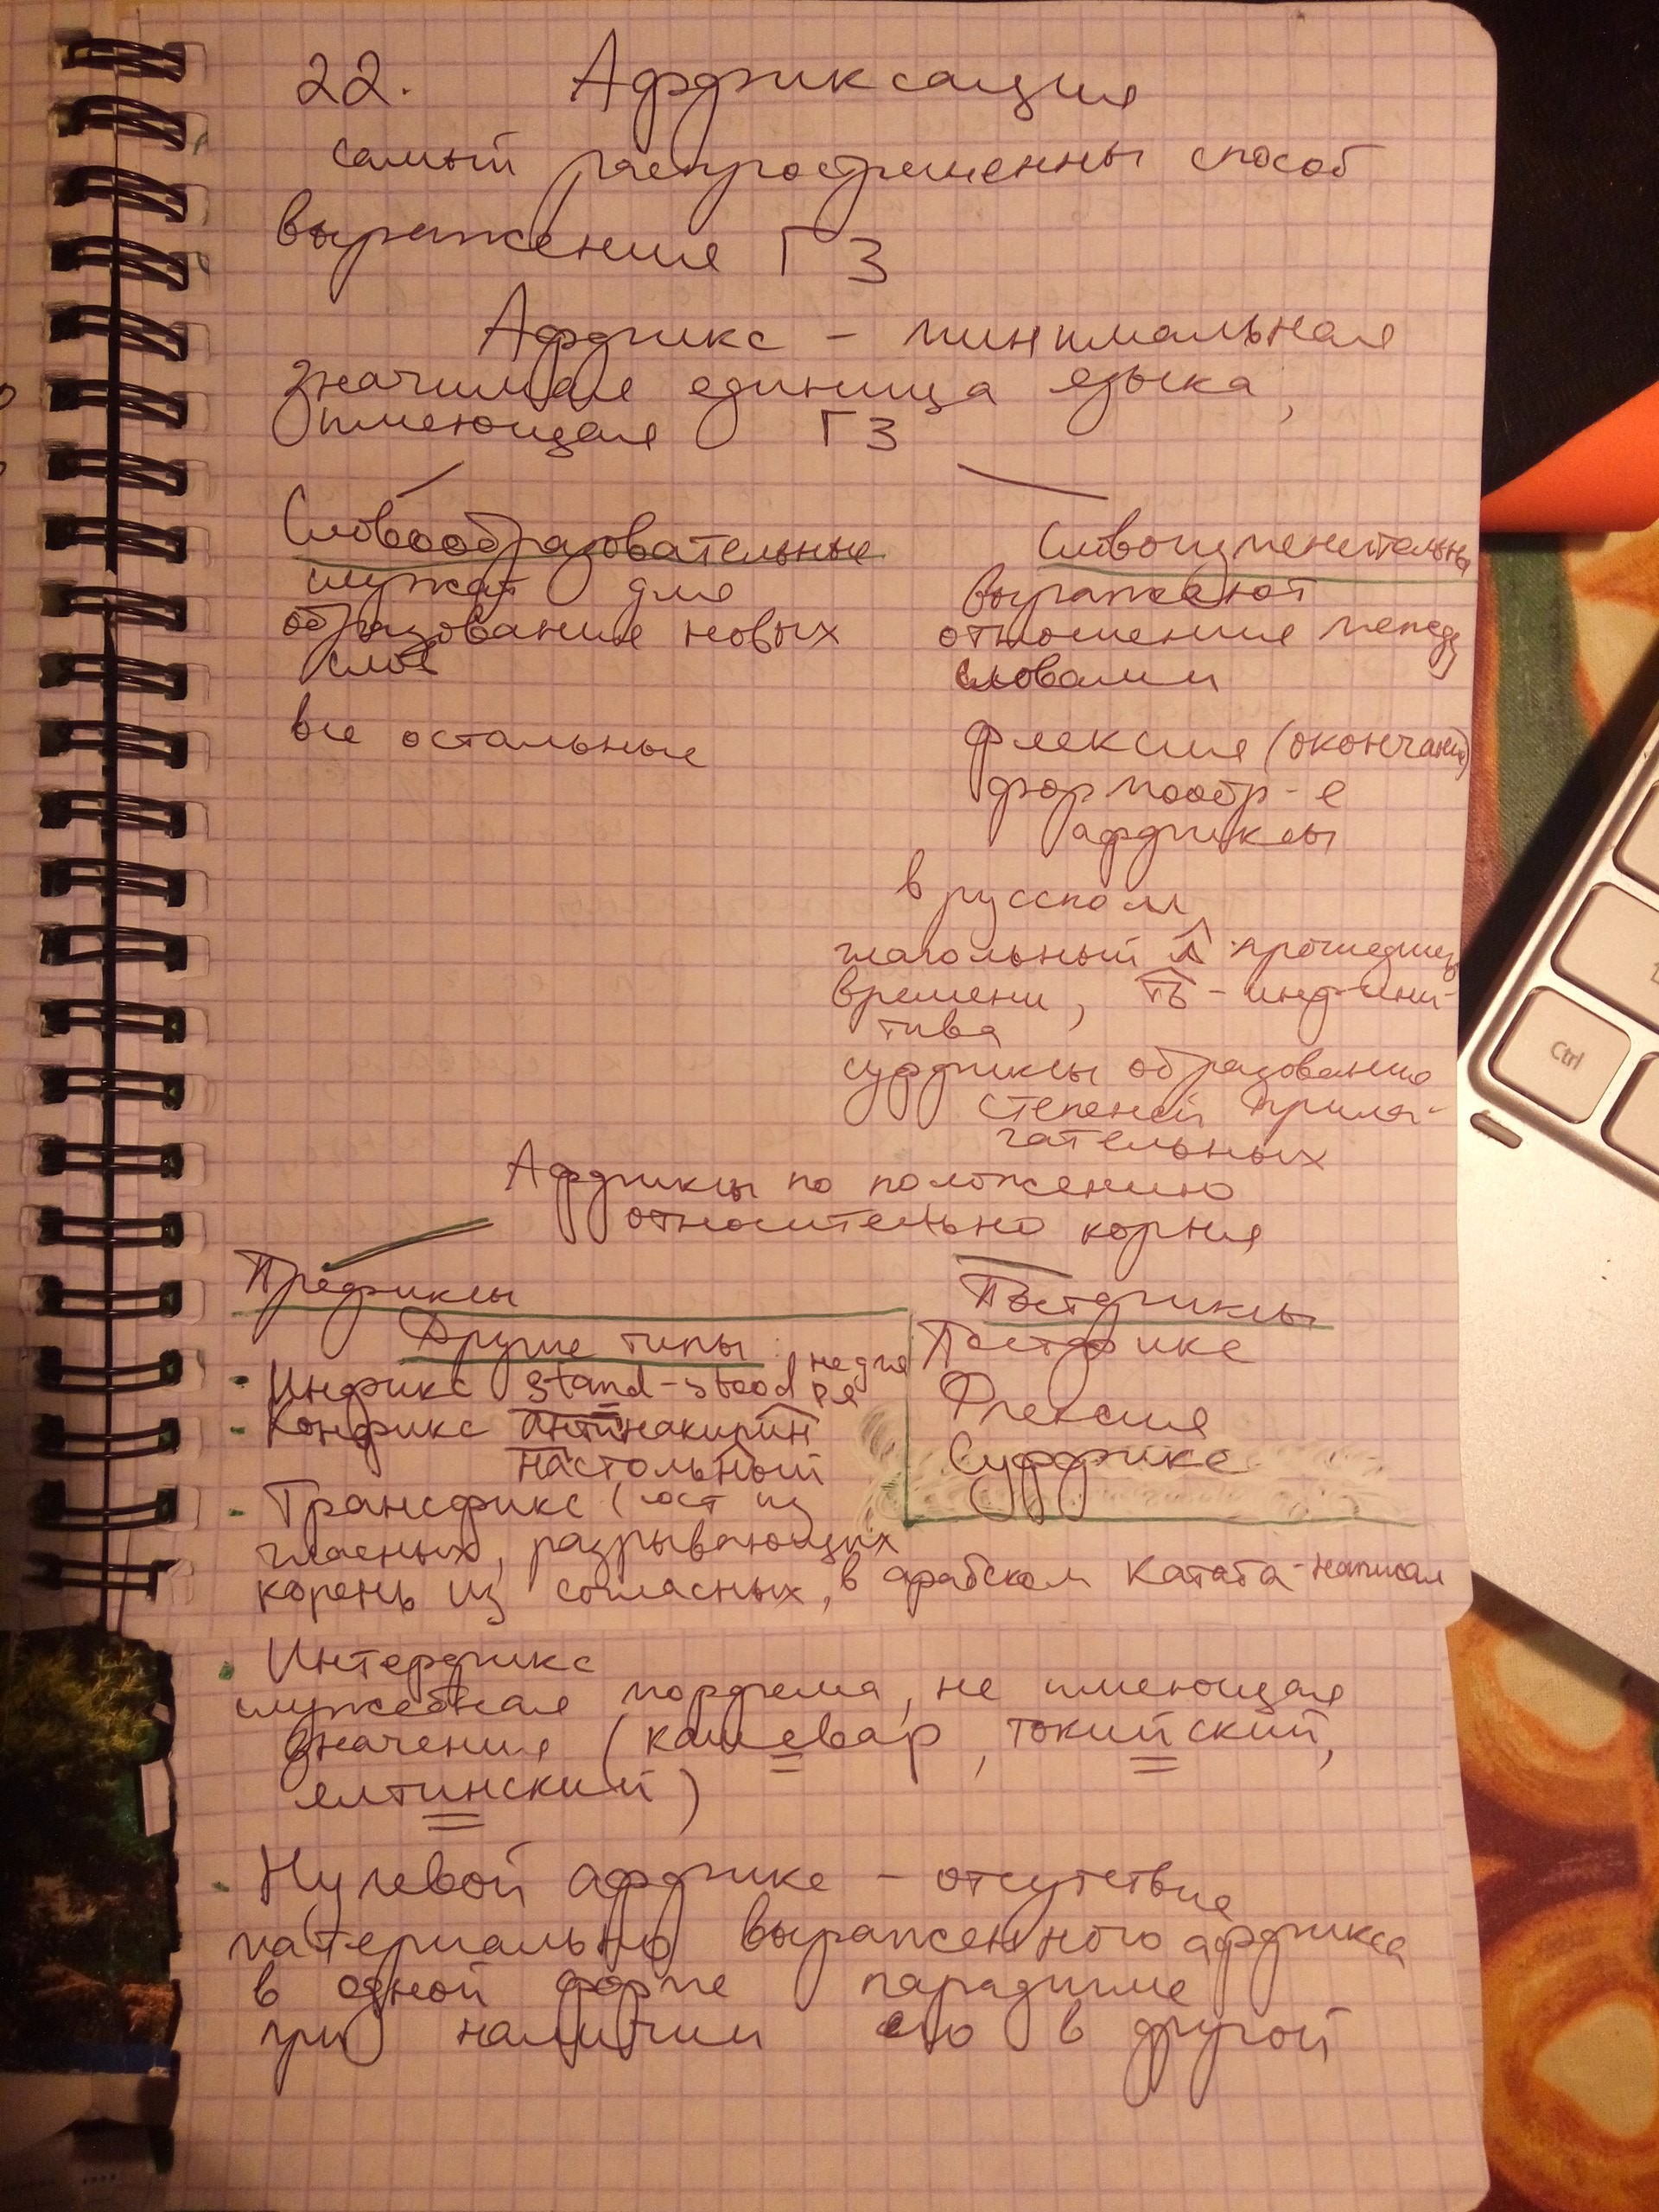 22. Аффиксация
самый распространенны способ
выражения ГЗ
Аффикс – минимальная
значимая единица языка,
имеющая ГЗ
Словообразовательные
служат для
образования новых
слов
все остальные
Словоизменительны
выражают
отношения между
словами
флексия (окончания)
формообр-е
аффиксы
в русском
глагольный л прошедшего
времени, ть - инфини-
тива
суффиксы образования
степеней прила-
гательных
Аффиксы по положению
относительно корня
Префиксы
Другие типы:
• Инфикс stand-stood
• Конфикс антинакипин
настольный
• Трансфикс (сост из
гласных, разрывающих
корень из согласных, в арабском Катата - написал
Постфиксы
Постфикс
Флексия
Суффикс
• Интерфикс
служебная морфема, не имеющая
значения (кашевар, токийский,
ялтинский)
• Нулевой аффикс – отсутствие
материально выраженного аффикса
в одной форме парадигме
при наличии его в другой
Ctrl